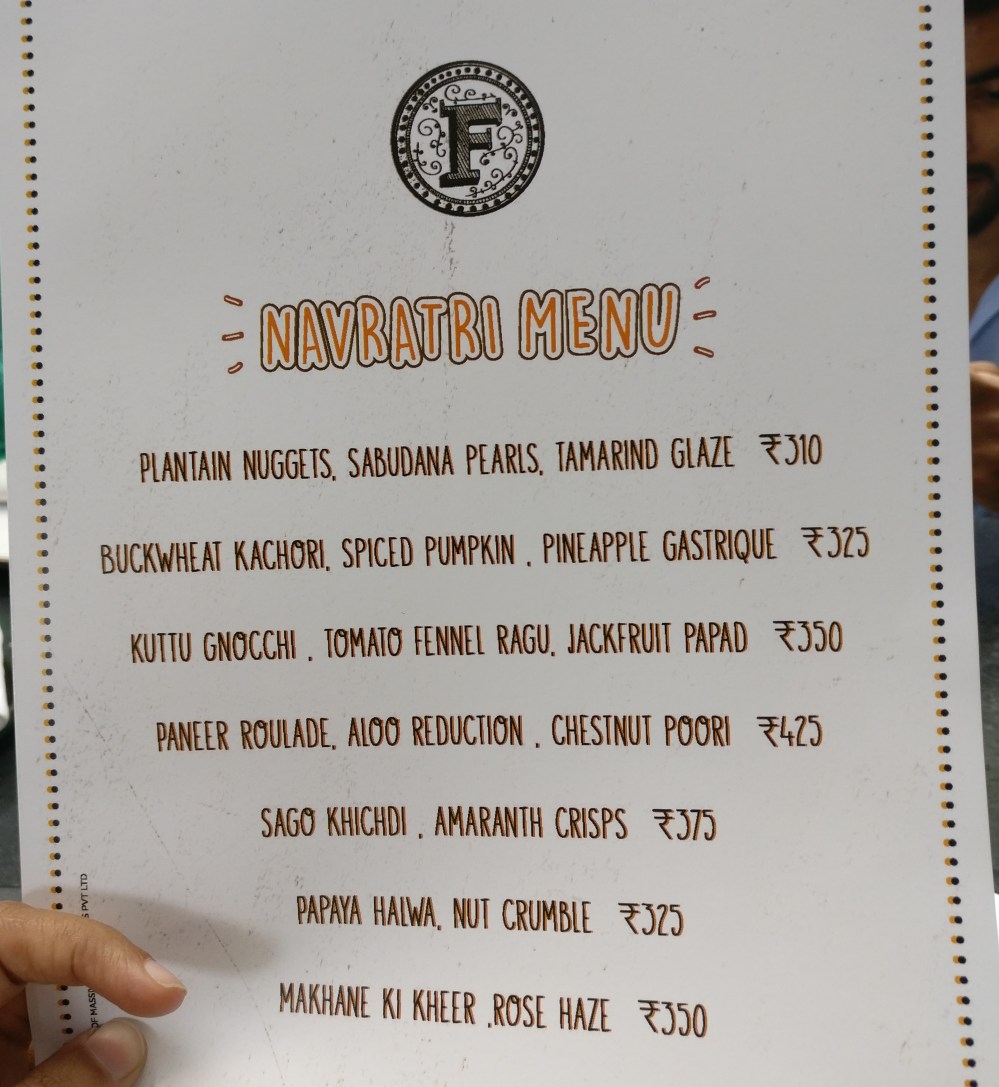 F
NAVRATRI MENU
PLANTAIN NUGGETS, SABUDANA PEARLS, TAMARIND GLAZE ₹310
BUCKWHEAT KACHORI, SPICED PUMPKIN , PINEAPPLE GASTRIQUE ₹325
KUTTU GNOCCHI , TOMATO FENNEL RAGU, JACKFRUIT PAPAD ₹350
PANEER ROULADE, ALOO REDUCTION , CHESTNUT POORI ₹425
SAGO KHICHDI , AMARANTH CRISPS ₹375
PAPAYA HALWA, NUT CRUMBLE ₹325
MAKHANE KI KHEER ,ROSE HAZE ₹350
S PVT LTD